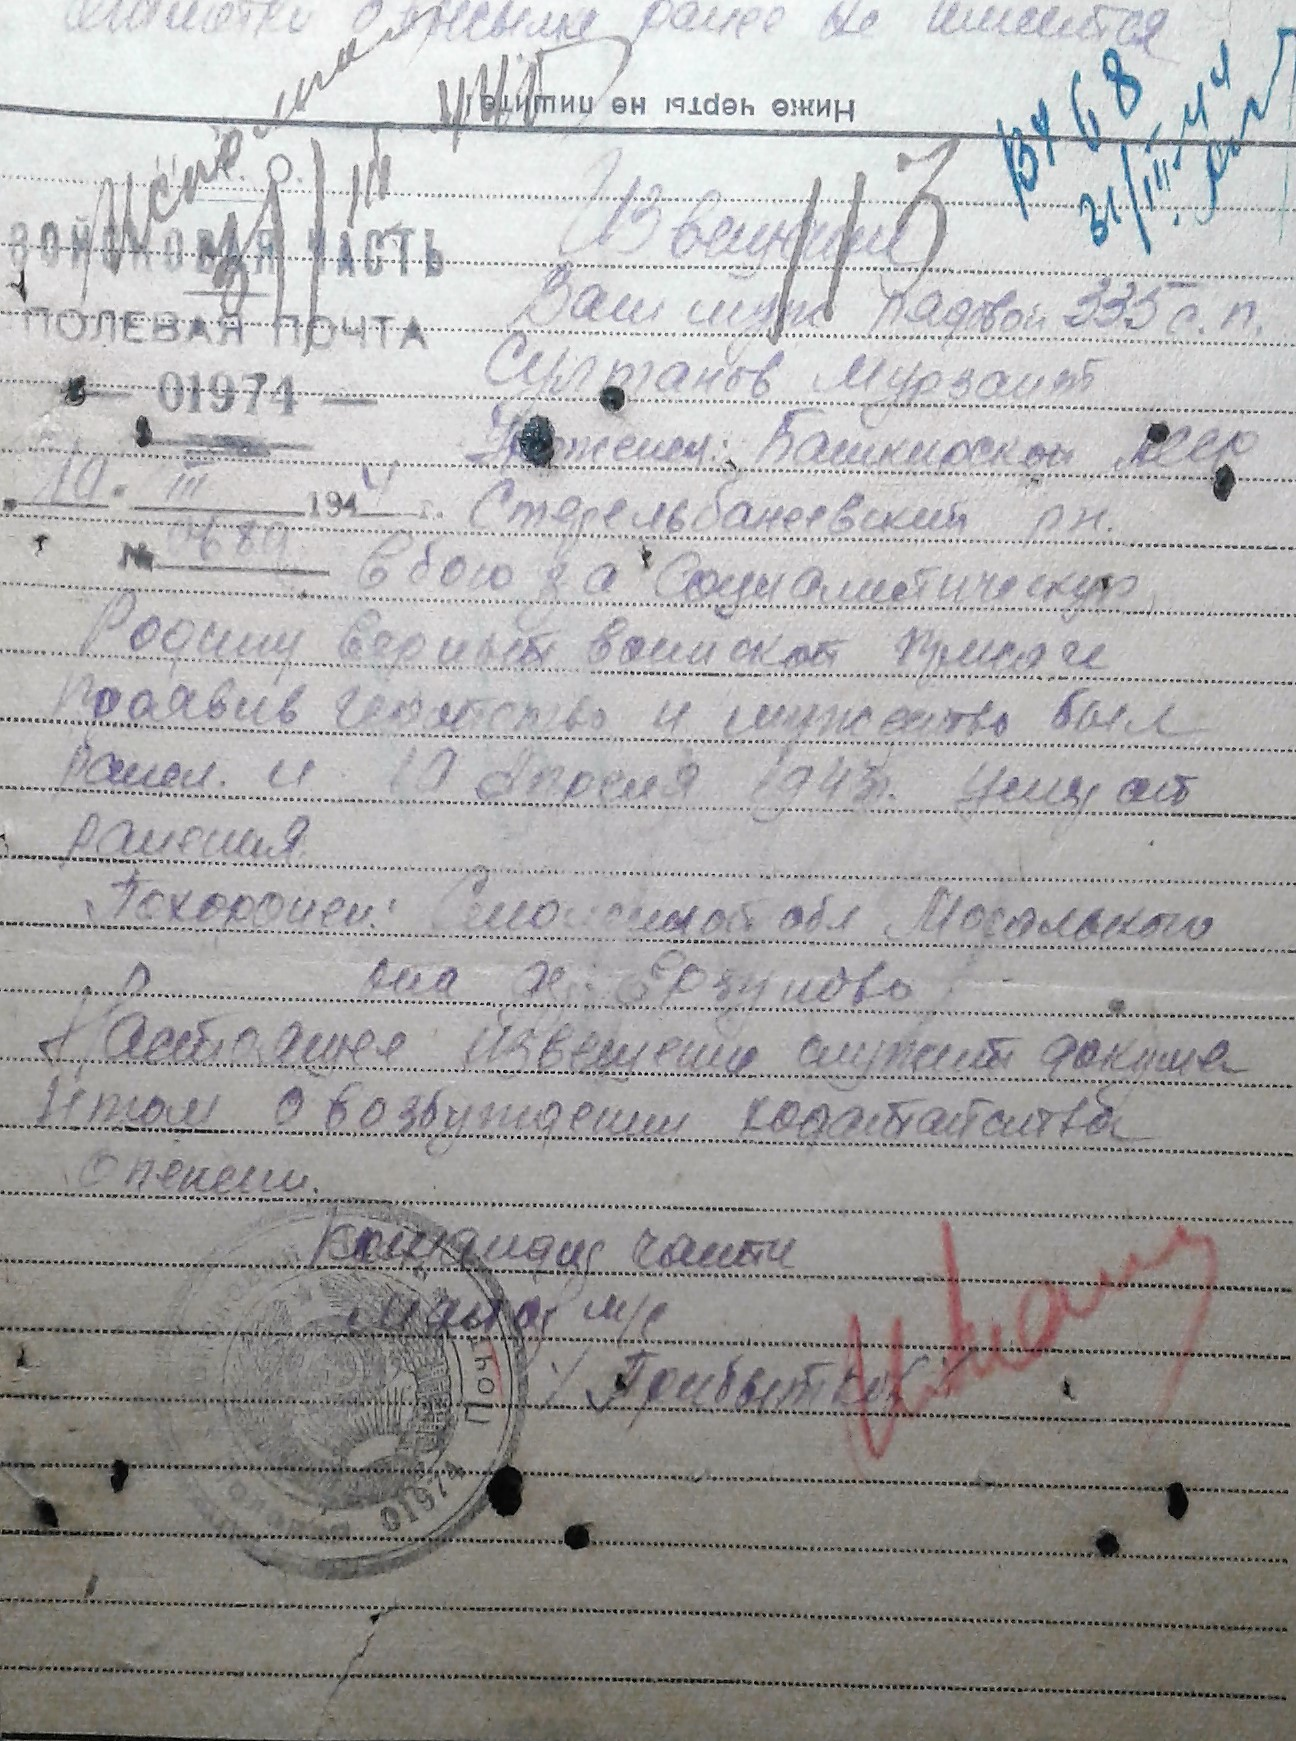 ранее не имеется
Ниже черты не пишите
Вх 68
31/III-44
113
ВОЙСКОВАЯ ЧАСТЬ
ПОЛЕВАЯ ПОЧТА
— 01974 —
10. III 1944 г.
№ 0689
Извещение
Ваш муж рядовой 335 с.п.
Султанов Мурзаит
Уроженец: Башкирской АССР
Стерлыбашевский рн.
в бою за Социалистическую
Родину верный воинской присяге
проявив геройство и мужество был
ранен. и 10 Апреля 1943г. умер от
ранения
Похоронен: Смоленской обл Мосальского
она Ерзуново
Настоящее извещение служит докуме
нтом о возбуждении ходатайства
о пенсии.
Командир части
м/с
Прибытков
01974